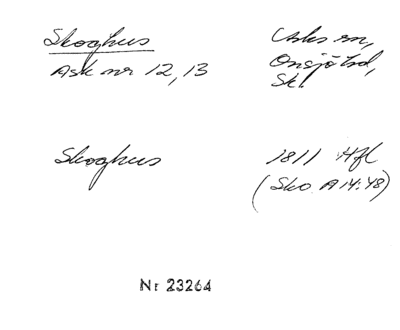 Skoghus
Ask nr 12, 13
Asks sn,
Onsjö hd,
Sk.
Skoghus
1811 Hfl
(Sko A14:48)
Nr 23264